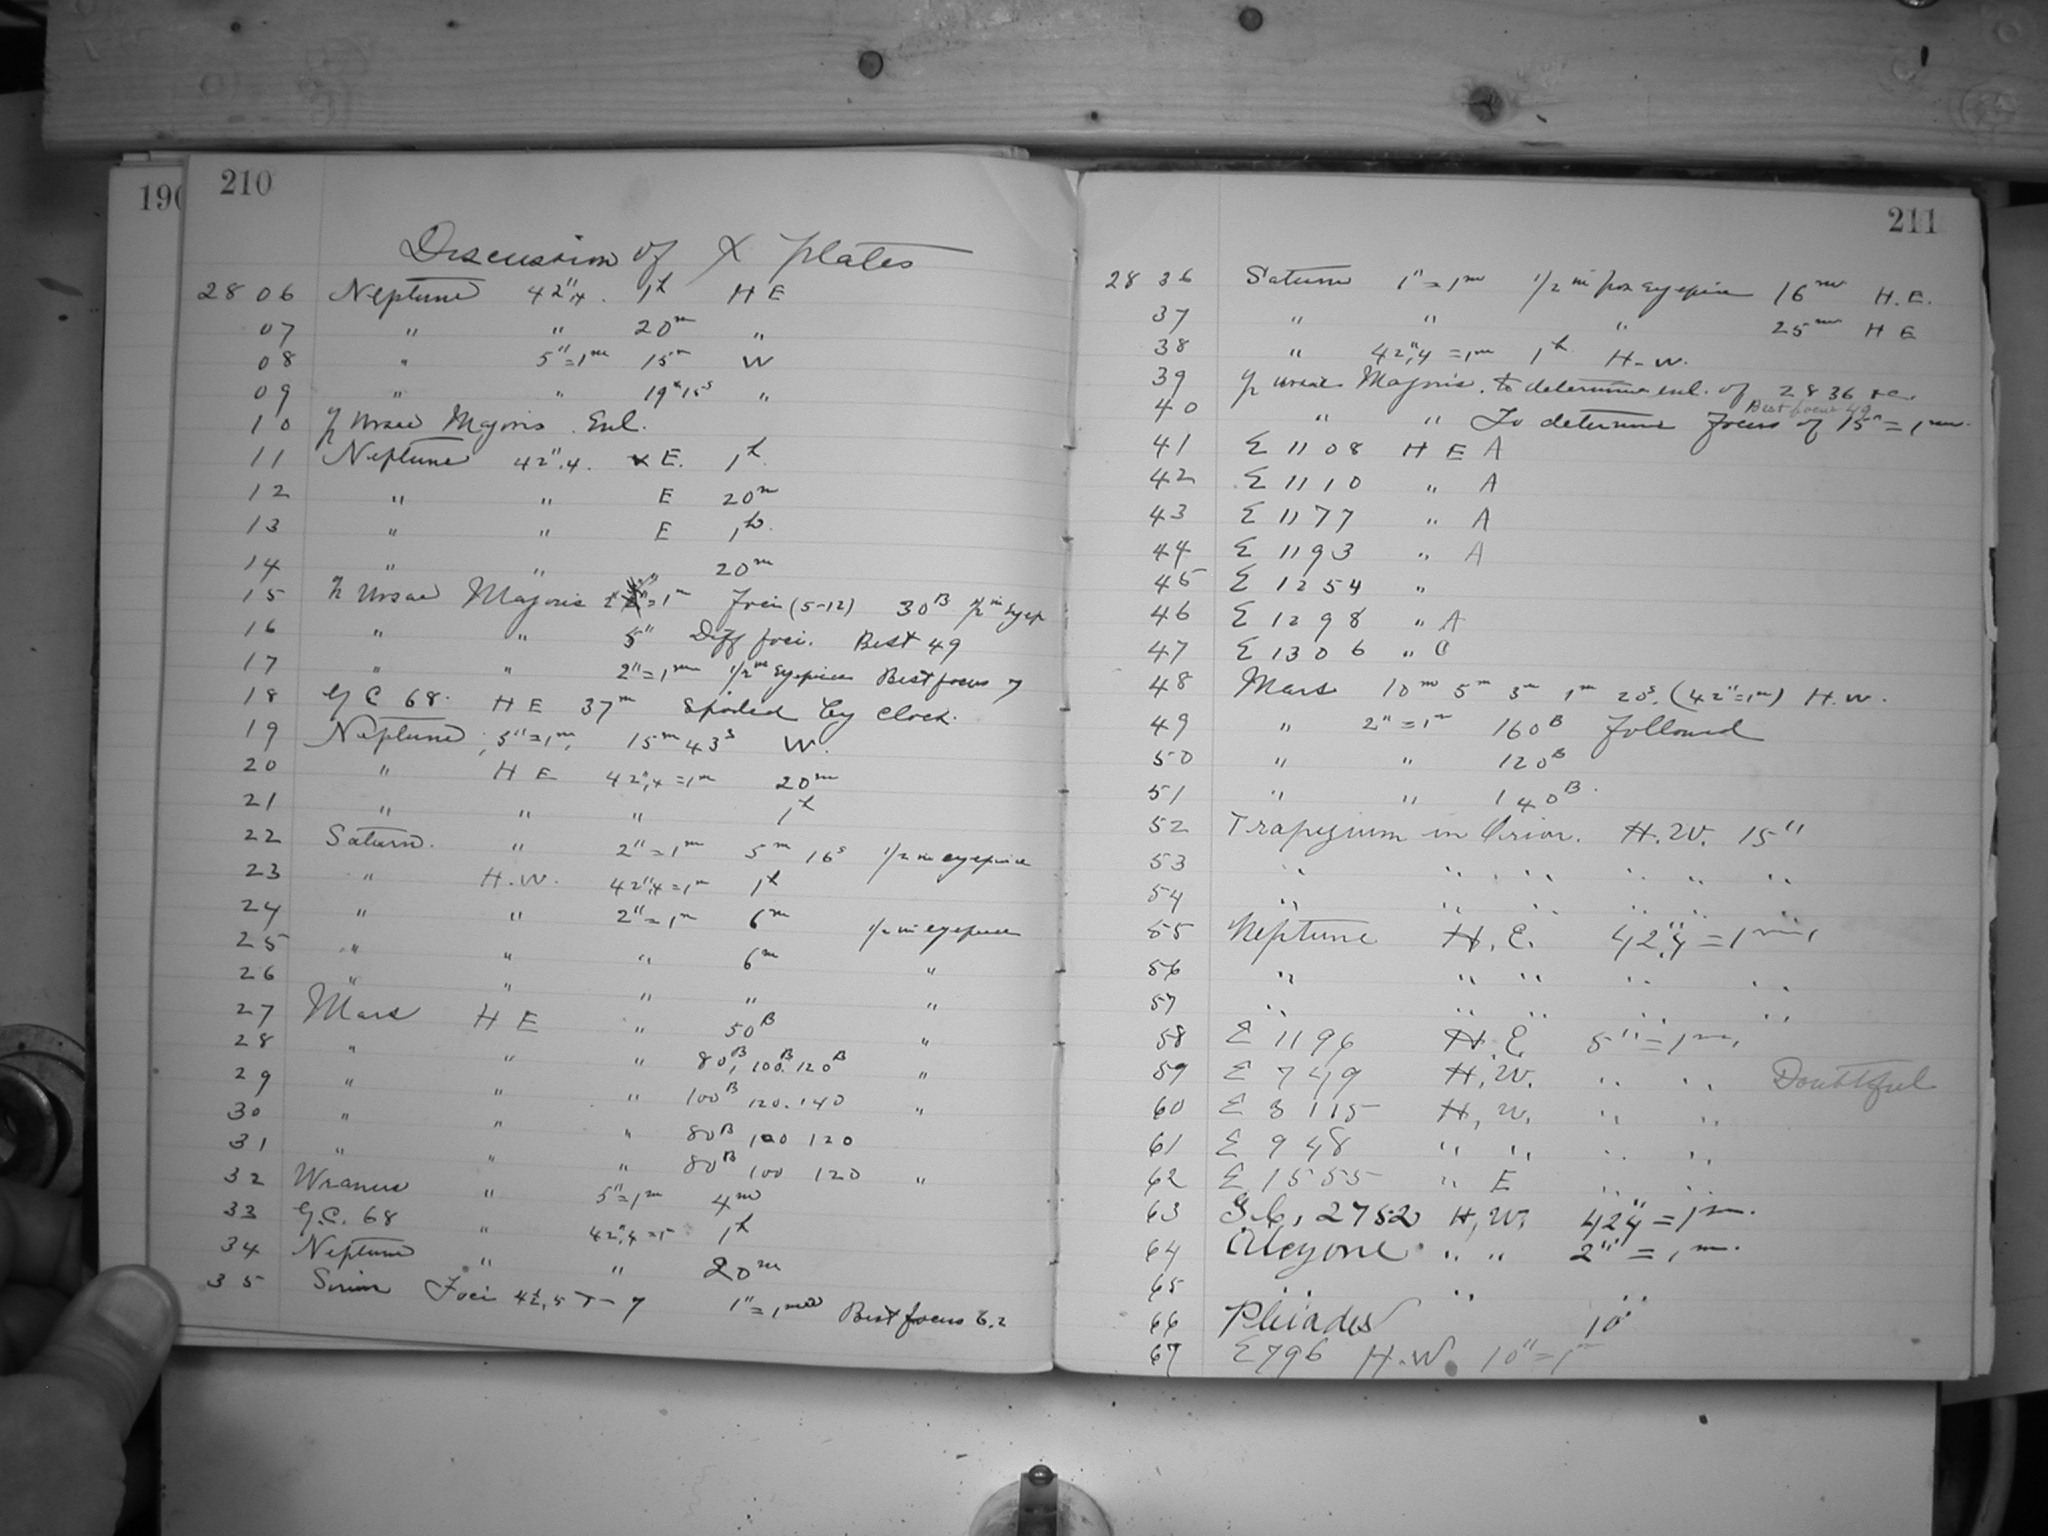 190
210
Discussion of X plates
28 06 Neptune 42".4. 1h H E
07 " " 20m "
08 " 5"=1m 15m W
09 " " 19m 15s "
10 Ursae Majoris Enl.
11 Neptune 42".4. E. 1h
12 " " E 20m
13 " " E 1h.
14 " " " 20m
15 Ursae Majoris =1m Foci (5-12) 30B 1/2 in Eyep
16 " " 5" Diff foci. Best 49
17 " " 2"=1m 1/2 in eyepiece Best focus 7
18 G C 68. H E 37m Spoiled by clock.
19 Neptune, 5"=1m, 15m 43s W.
20 " H E 42".4=1m 20m
21 " " " 1h
22 Saturn. " 2"=1m 5m 16s 1/2 in eyepiece
23 " H.W. 42".4=1m 1h
24 " " 2"=1m 6m 1/2 in eyepiece
25 " " " 6m "
26 " " " " "
27 Mars H E " 50B "
28 " " " 80B, 100B. 120B "
29 " " " 100B 120. 140 "
30 " " " 80B 100 120
31 " " " 80B 100 120 "
32 Uranus " 5"=1m 4m
33 G.C. 68 " 42".4=1m 1h
34 Neptune " " 20m
35 Sirius Foci 1"=1m Best focus 6.2
211
28 36 Saturn 1"=1m 1/2 in pos eyepiece 16m H.E.
37 " " " 25m H E
38 " 42".4=1m 1h H.W.
39 Ursae Majoris. to determine enl. of 2836 &c.
Best focus 49
40 " " To determine focus of 15"=1m.
41 Σ 1108 H E A
42 Σ 1110 " A
43 Σ 1177 " A
44 Σ 1193 " A
45 Σ 1254 "
46 Σ 1298 " A
47 Σ 1306 " C
48 Mars 10m 5m 3m 1m 20s. (42"=1m) H.W.
49 " 2"=1m 160B followed
50 " " 120B
51 " " 140B.
52 Trapezium in Orion. H.W. 15"
53 " " " " " "
54 " " " " " "
55 Neptune H.E. 42".4=1m.
56 " " " " "
57 " " " " "
58 Σ 1196 H.E. 5"=1m.
59 Σ 749 H.W. " " Doubtful
60 Σ 3115 H.W. " "
61 Σ 948 " " " "
62 Σ 1555 " E " "
63 G.C. 2752 H.W. 42".4=1m.
64 Alcyone " " 2"=1m.
65 " " "
66 Pleiades " 10"
67 Σ 796 H.W. 10"=1m